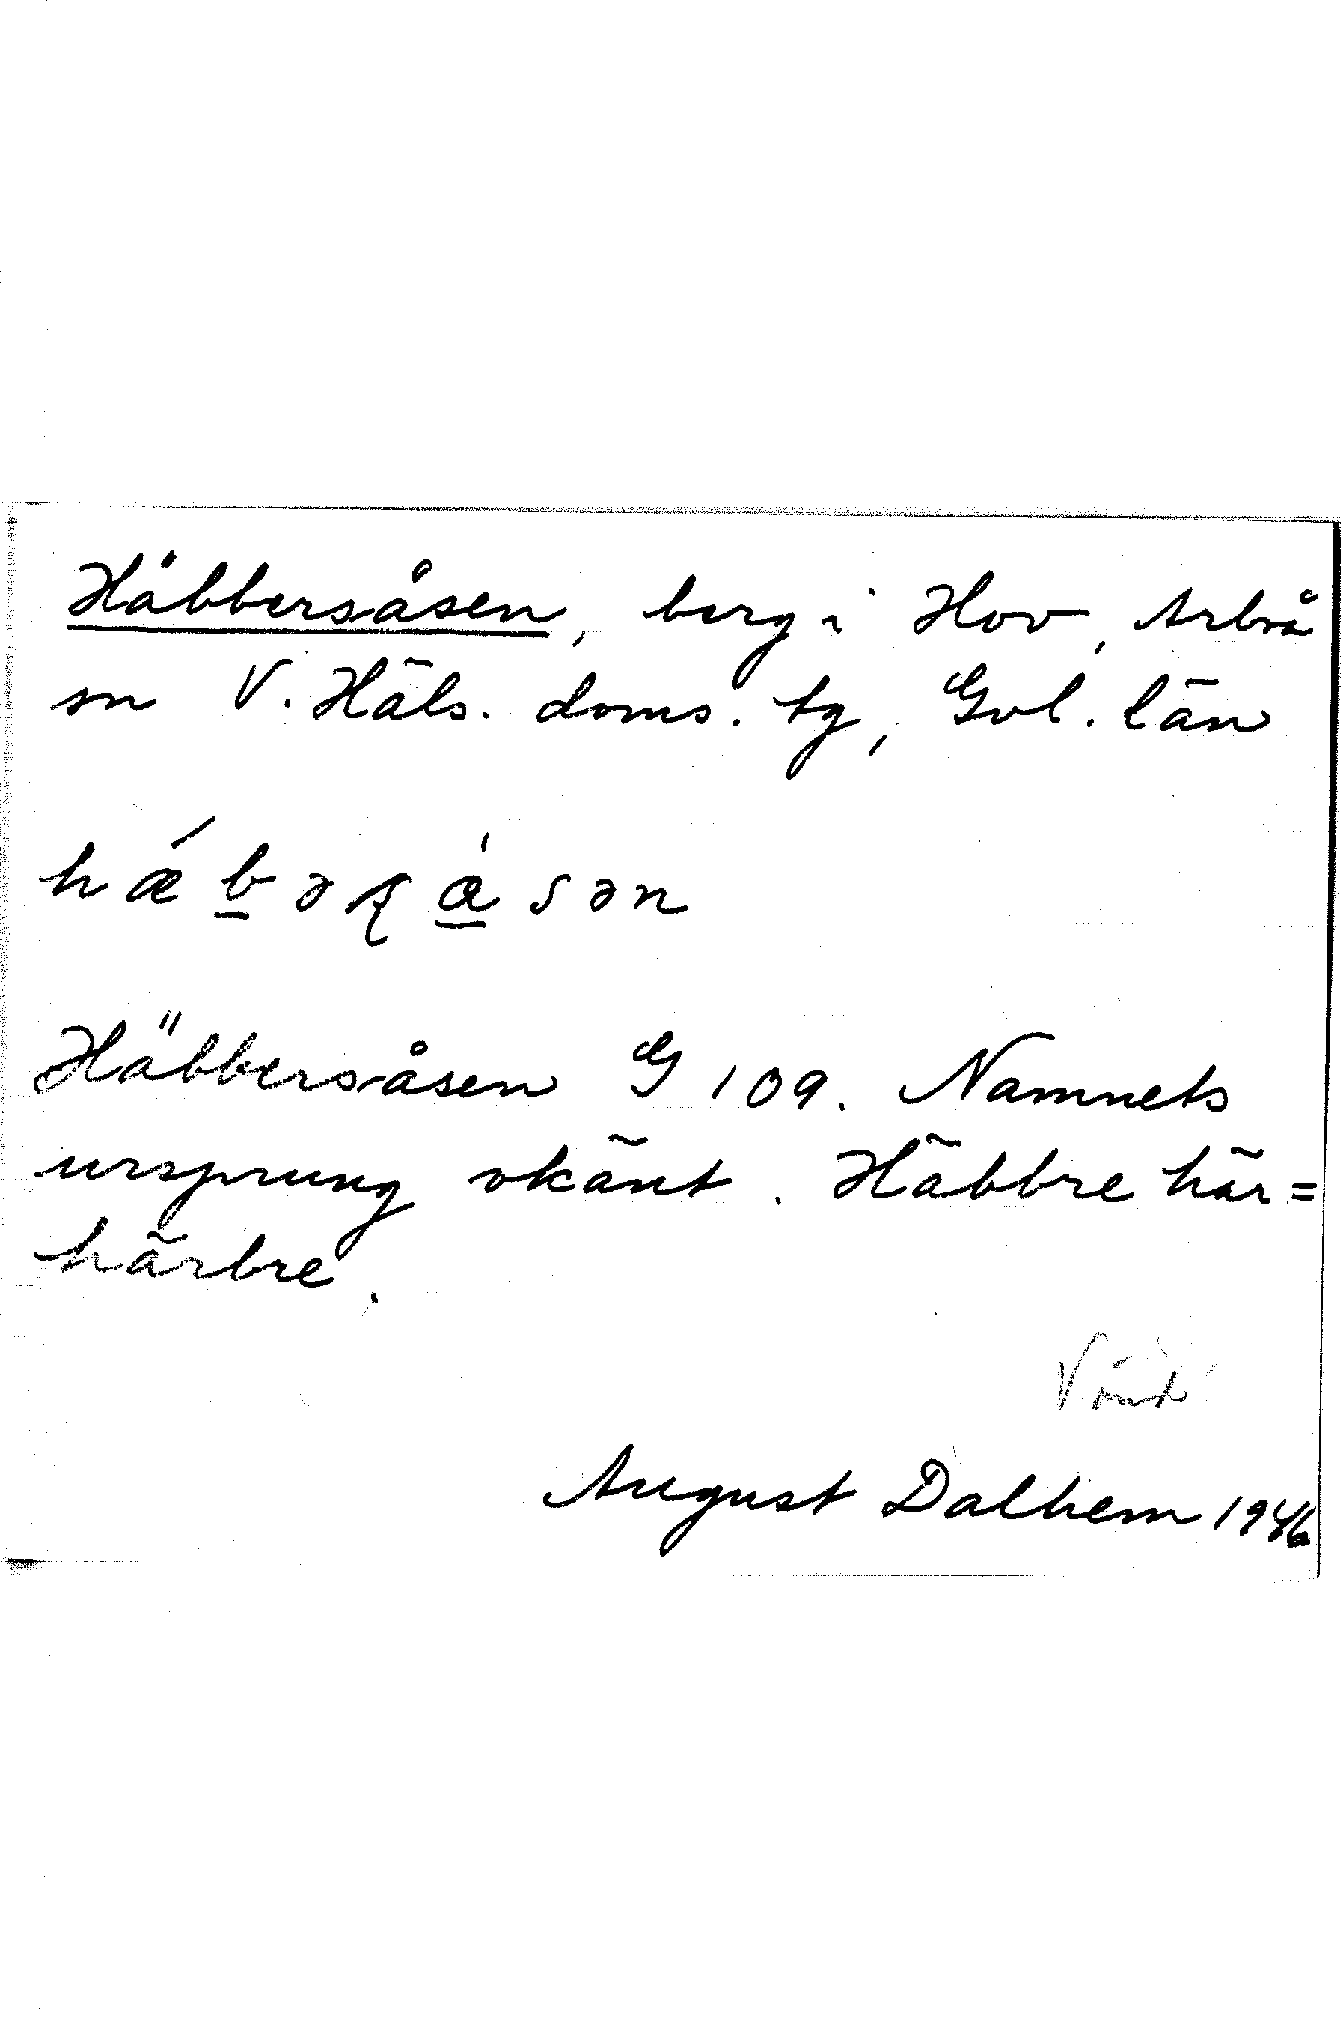 Häbbersåsen, berg i Hov, Arbrå
sn V. Häls. doms. tg, Gvl. län
hǽbəʂåsən
Häbbersåsen G 109. Namnets
ursprung okänt. Häbbre här=
härbre.
August Dalhem 1946